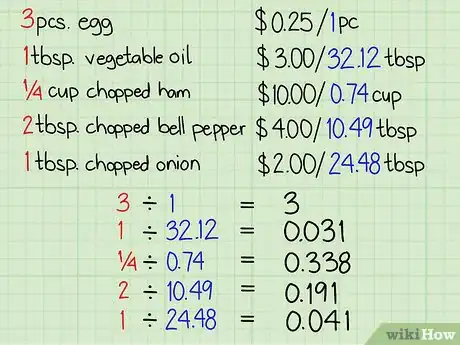 3pcs. egg $0.25/1pc
1tbsp. vegetable oil $3.00/32.12 tbsp
1/4 cup chopped ham $10.00/0.74 cup
2tbsp. chopped bell pepper $4.00/10.49 tbsp
1tbsp. chopped onion $2.00/24.48 tbsp
3 ÷ 1 = 3
1 ÷ 32.12 = 0.031
1/4 ÷ 0.74 = 0.338
2 ÷ 10.49 = 0.191
1 ÷ 24.48 = 0.041
wikiHow